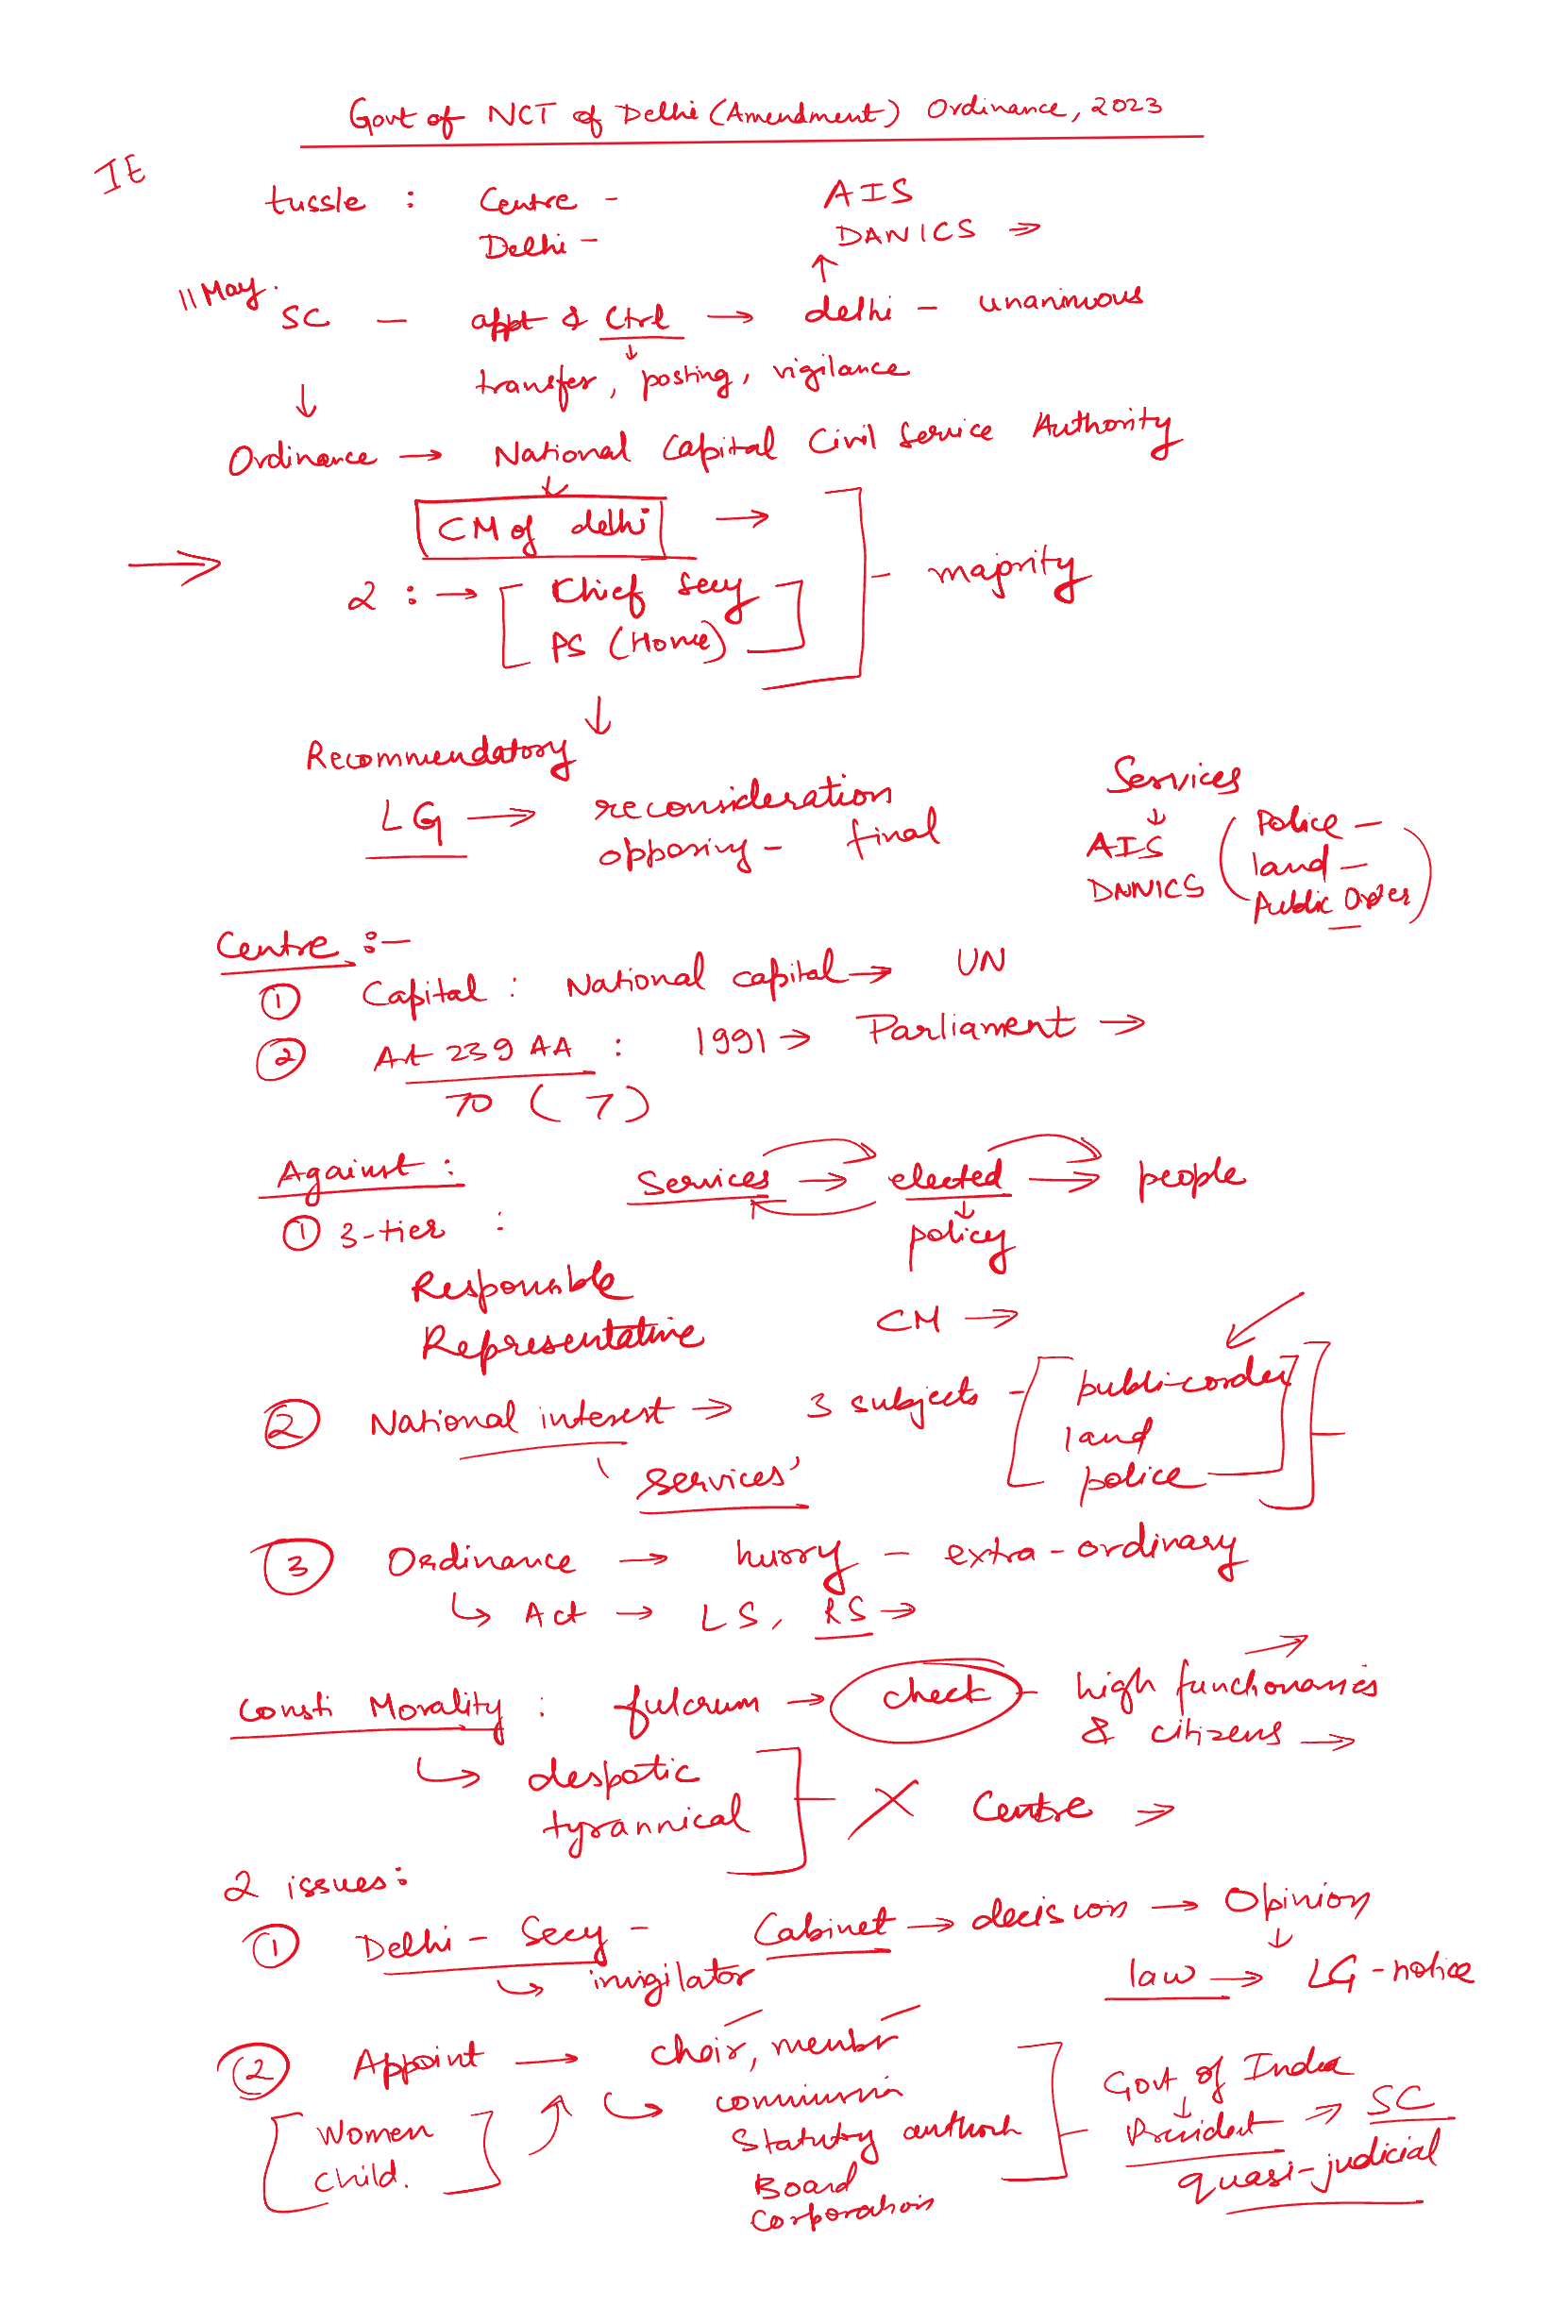 Govt of NCT of Delhi (Amendment) Ordinance, 2023
IE
tussle : Centre - AIS
Delhi - DANICS →
↑
11 May. SC - appt & Ctrl → delhi - unanimous
↓ ↓ transfer, posting, vigilance
Ordinance → National Capital Civil Service Authority
↓
CM of delhi →
→ 2 : → [ Chief Secy ] - majority
PS (Home)
↓
Recommendatory
LG → reconsideration
opposing - final
Services
↓
AIS ( Police -
DANICS land -
Public Order )
Centre :-
① Capital : National capital → UN
② Art 239 AA : 1991 → Parliament →
70 ( 7 )
Against : Services → elected → people
① 3-tier : ↓ policy
Responsible
Representative CM →
② National interest → 3 subjects - [ public order
land
'Services' police ]
③ Ordinance → hurry - extra-ordinary
↳ Act → LS, RS →
Consti Morality : fulcrum → check - high functionaries
& citizens →
↳ despotic
tyrannical ] - X Centre →
2 issues :
① Delhi - Secy - Cabinet → decision → Opinion
↓
↳ invigilator law → LG - notice
② Appoint → chair, membr
↳ commissin
[ Women Statuty authort
Child. ] Board
Corporations
Govt of India
↓
President → SC
quasi-judicial